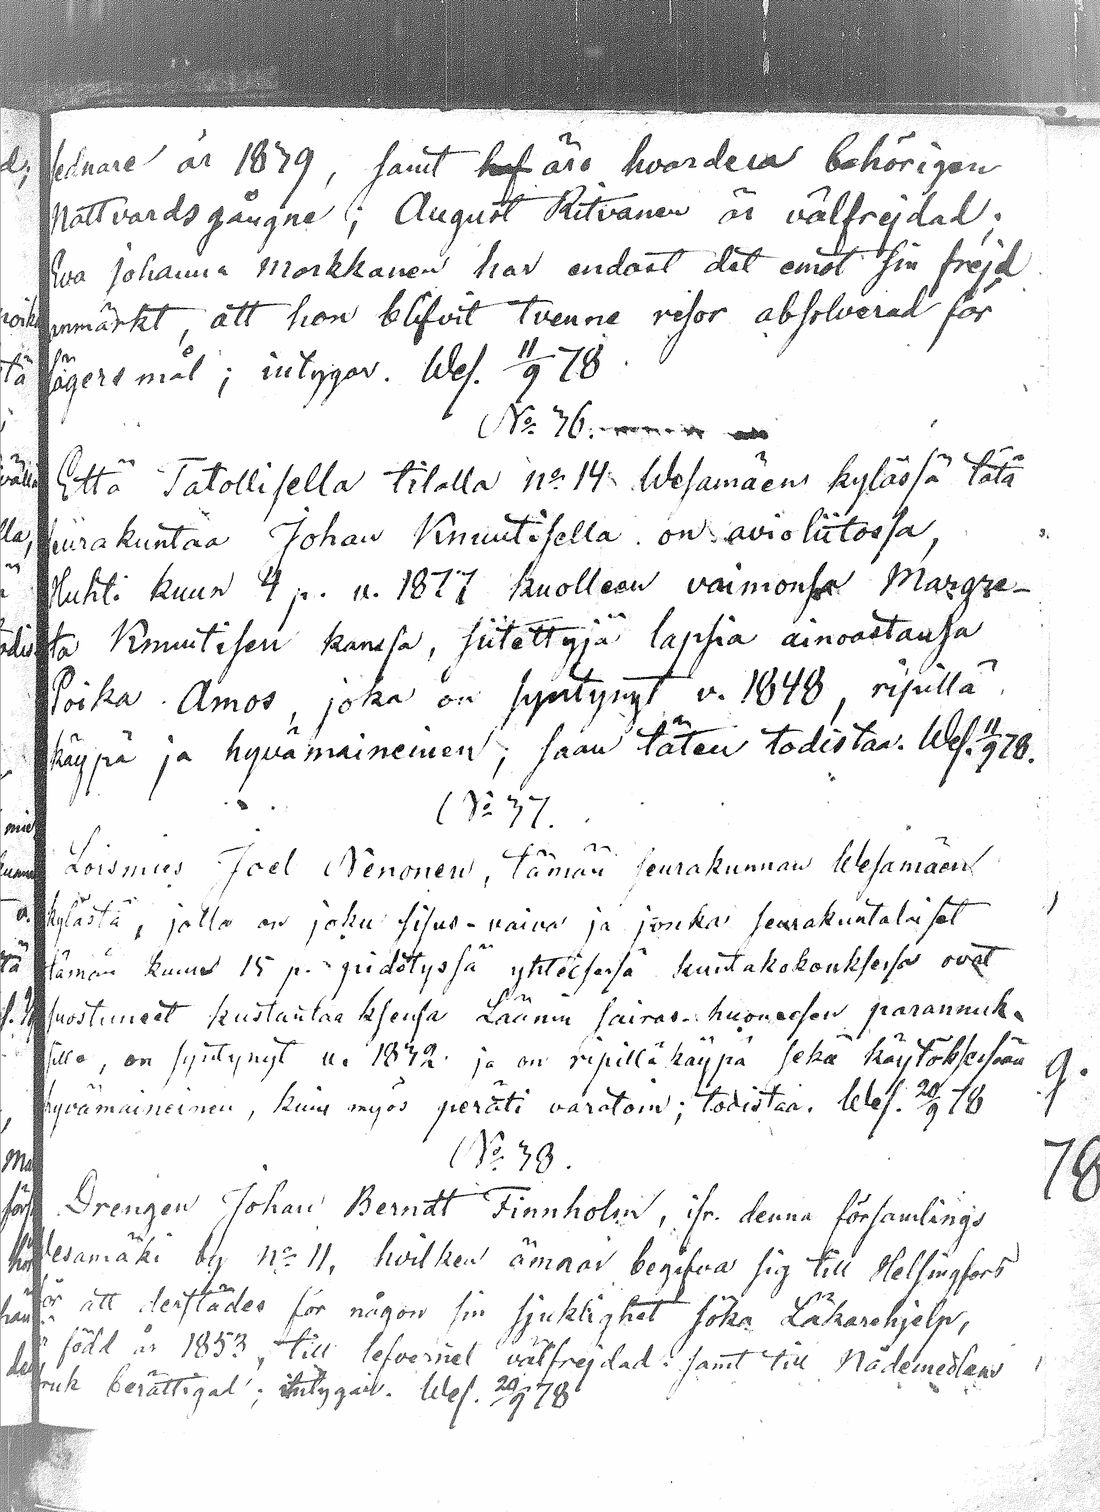 sednare år 1839, samt äro hvardera behörigen
Nattvardsgångne; August Ritvanen är välfrejdad;
Eva Johanna Markkanen har endast det emot sin frejd
anmärkt, att hon blifvit tvenne resor absolverad för
lägersmål; intygar. Wes. 11/9 78
No 36.
Että Tatollisella tilalla no 14 Wesamäen kylässä tätä
seurakuntaa Johan Knuutisella on avioliitossa,
Huhti kuun 4 p. v. 1877 kuolleen vaimonsa Margre-
ta Knuutisen kanssa, siitettyjä lapsia ainoastansa
Poika Amos, joka on syntynyt v. 1848, ripillä
käypä ja hyvämaineinen; saan täten todistaa. Wes. 11/9 78.
No 37.
Loismies Joel Nenonen, tämän seurakunnan Wesamäen
kylästä, jolla on joku sisus-vaiva ja jonka seurakuntalaiset
tämän kuun 15 p. pidetyssä yhteisessä kuntakokouksessa ovat
suostuneet kustantaaksensa Läänin sairas-huoneesen parannuk-
sille, on syntynyt v. 1832 ja on ripilläkäypä sekä käytöksessään
hyvämaineinen, kuin myös peräti varatoin; todistaa. Wes. 20/9 78
No 38.
Drengen Johan Berndt Finnholm, ifr. denna församlings
Vesamäki by no 11, hvilken ämnar begifva sig till Helsingfors
för att derstädes för någon sin sjuklighet söka Läkarehjelp,
är född år 1853, till lefvernet välfrejdad samt till Nådemedlens
bruk berättigad; intygar. Wes. 20/9 78
9.
78